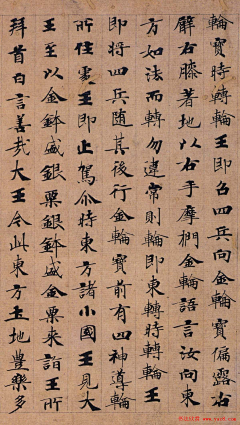 輪寶時轉輪王即召四兵向金輪寶偏露右
臂右膝著地以右手摩捫金輪語言汝向東
方如法而轉勿違常則輪即東轉時轉輪王
即將四兵隨其後行金輪寶前有四神導輪
所住處王即止駕尒時東方諸小國王見大
王至以金鉢盛銀粟銀鉢盛金粟來詣王所
拜首白言善哉大王今此東方土地豐樂多